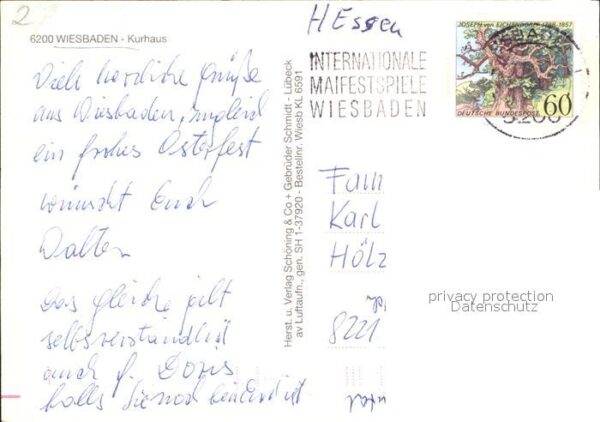 2
HEssen
6200 WIESBADEN - Kurhaus
Viele herzliche Grüße
aus Wiesbaden, zugleich
ein frohes Osterfest
wünscht Euch
Walter
Das gleiche gilt
selbstverständlich
auch f. Doris
falls sie noch bei Euch ist
Herst. u. Verlag Schöning & Co + Gebrüder Schmidt - Lübeck
av Luftaufn., gen. SH 1-37920 - Bestellnr. Wiesb KL 6591
INTERNATIONALE
MAIFESTSPIELE
WIESBADEN
JOSEPH von EICHENDORFF 1788-1857
60
DEUTSCHE BUNDESPOST
Fam
Karl
Hölz
8221
privacy protection
Datenschutz